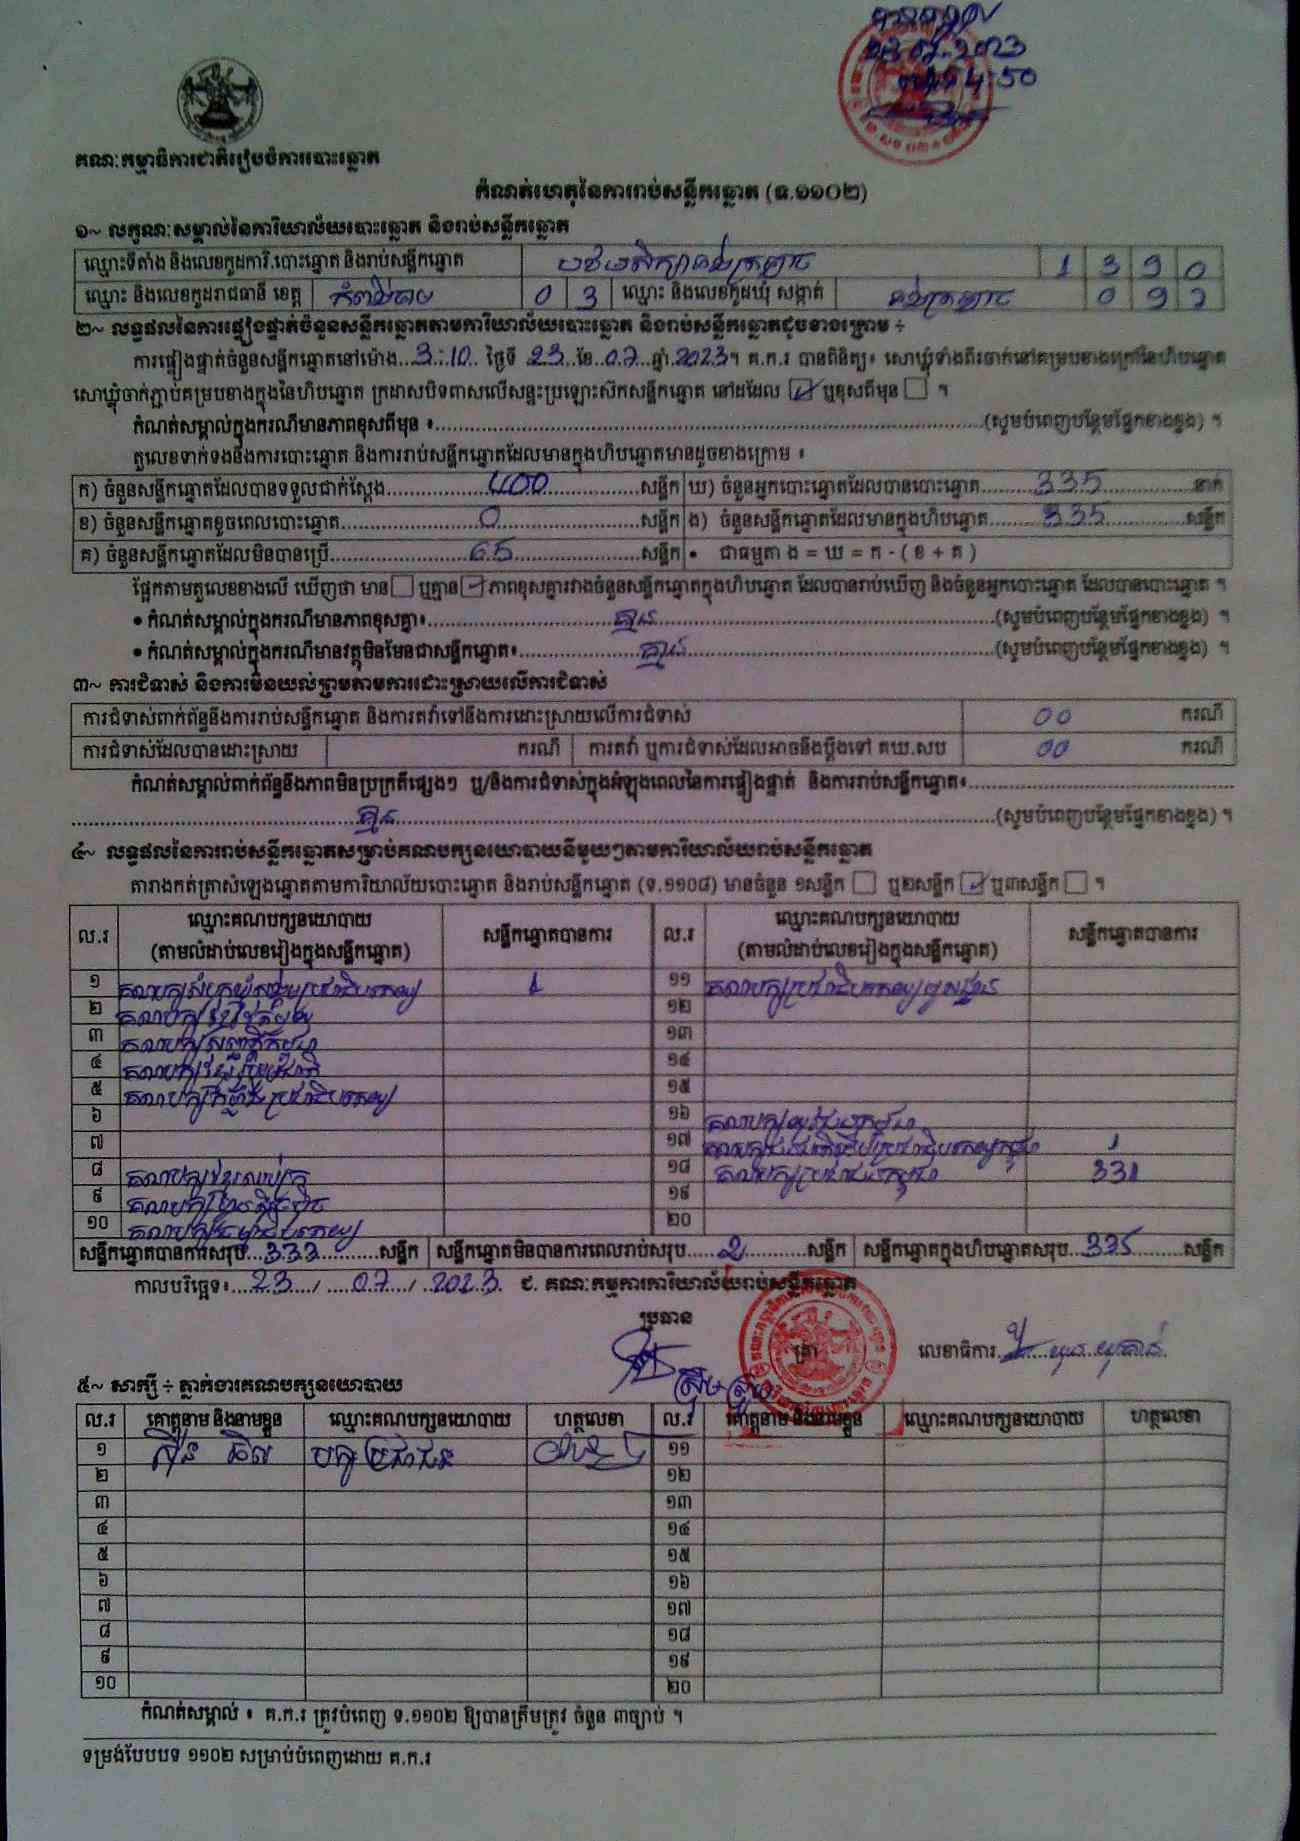 បានទទួល
23.07.2023
គណៈកម្មាធិការជាតិរៀបចំការបោះឆ្នោត
កំណត់ហេតុនៃការរាប់សន្លឹកឆ្នោត (ទ.១១០២)
១~ លក្ខណៈសម្គាល់នៃការិយាល័យបោះឆ្នោត និងរាប់សន្លឹកឆ្នោត
ឈ្មោះទីតាំង និងលេខកូដការិ.បោះឆ្នោត និងរាប់សន្លឹកឆ្នោត 1 3 9 0
ឈ្មោះ និងលេខកូដរាជធានី ខេត្ត កំពង់ចាម 0 3 ឈ្មោះ និងលេខកូដឃុំ សង្កាត់ 0 9
២~ លទ្ធផលនៃការផ្ទៀងផ្ទាត់ចំនួនសន្លឹកឆ្នោតតាមការិយាល័យបោះឆ្នោត និងរាប់សន្លឹកឆ្នោតដូចខាងក្រោម ÷
ការផ្ទៀងផ្ទាត់ចំនួនសន្លឹកឆ្នោតនៅម៉ោង...3:10.. ថ្ងៃទី 23..ខែ..07..ឆ្នាំ.2023។ គ.ក.រ បានពិនិត្យ៖ សោឃ្លុំទាំងពីរចាក់នៅគម្របខាងក្រៅនៃហិបឆ្នោត
សោឃ្លុំចាក់ភ្ជាប់គម្របខាងក្នុងនៃហិបឆ្នោត ក្រដាសបិទពាសលើសន្ទះប្រឡោះស៊កសន្លឹកឆ្នោត នៅដដែល ☑ ឬខុសពីមុន ☐ ។
កំណត់សម្គាល់ក្នុងករណីមានភាពខុសពីមុន ៖........(សូមបំពេញបន្ថែមផ្នែកខាងខ្នង) ។
តួលេខទាក់ទងនឹងការបោះឆ្នោត និងការរាប់សន្លឹកឆ្នោតដែលមានក្នុងហិបឆ្នោតមានដូចខាងក្រោម ៖
ក) ចំនួនសន្លឹកឆ្នោតដែលបានទទួលជាក់ស្តែង........400........សន្លឹក ឃ) ចំនួនអ្នកបោះឆ្នោតដែលបានបោះឆ្នោត........335........នាក់
ខ) ចំនួនសន្លឹកឆ្នោតខូចពេលបោះឆ្នោត........0........សន្លឹក ង) ចំនួនសន្លឹកឆ្នោតដែលមានក្នុងហិបឆ្នោត........335........សន្លឹក
គ) ចំនួនសន្លឹកឆ្នោតដែលមិនបានប្រើ........65........សន្លឹក • ជាធម្មតា ង = ឃ = ក - ( ខ + គ )
ផ្អែកតាមតួលេខខាងលើ ឃើញថា មាន ☐ ឬគ្មាន ☑ ភាពខុសគ្នារវាងចំនួនសន្លឹកឆ្នោតក្នុងហិបឆ្នោត ដែលបានរាប់ឃើញ និងចំនួនអ្នកបោះឆ្នោត ដែលបានបោះឆ្នោត ។
• កំណត់សម្គាល់ក្នុងករណីមានភាពខុសគ្នា៖........គ្មាន........(សូមបំពេញបន្ថែមផ្នែកខាងខ្នង) ។
• កំណត់សម្គាល់ក្នុងករណីមានវត្ថុមិនមែនជាសន្លឹកឆ្នោត៖........គ្មាន........(សូមបំពេញបន្ថែមផ្នែកខាងខ្នង) ។
៣~ ការជំទាស់ និងការមិនយល់ព្រមតាមការដោះស្រាយលើការជំទាស់
ការជំទាស់ពាក់ព័ន្ធនឹងការរាប់សន្លឹកឆ្នោត និងការតវ៉ាទៅនឹងការដោះស្រាយលើការជំទាស់ 00 ករណី
ការជំទាស់ដែលបានដោះស្រាយ ករណី ការតវ៉ា ឬការជំទាស់ដែលអាចនឹងប្តឹងទៅ គឃ.សប 00 ករណី
កំណត់សម្គាល់ពាក់ព័ន្ធនឹងភាពមិនប្រក្រតីផ្សេងៗ ឬ/និងការជំទាស់ក្នុងអំឡុងពេលនៃការផ្ទៀងផ្ទាត់ និងការរាប់សន្លឹកឆ្នោត៖........
........គ្មាន........(សូមបំពេញបន្ថែមផ្នែកខាងខ្នង) ។
៤~ លទ្ធផលនៃការរាប់សន្លឹកឆ្នោតសម្រាប់គណបក្សនយោបាយនីមួយៗតាមការិយាល័យរាប់សន្លឹកឆ្នោត
តារាងកត់ត្រាសំឡេងឆ្នោតតាមការិយាល័យបោះឆ្នោត និងរាប់សន្លឹកឆ្នោត (ទ.១១០៨) មានចំនួន ១សន្លឹក ☐ ឬ២សន្លឹក ☑ ឬ៣សន្លឹក ☐ ។
ល.រ ឈ្មោះគណបក្សនយោបាយ (តាមលំដាប់លេខរៀងក្នុងសន្លឹកឆ្នោត) សន្លឹកឆ្នោតបានការ ល.រ ឈ្មោះគណបក្សនយោបាយ (តាមលំដាប់លេខរៀងក្នុងសន្លឹកឆ្នោត) សន្លឹកឆ្នោតបានការ
១ 1 ១១
២ ១២
៣ ១៣
៤ ១៤
៥ ១៥
៦ ១៦ គណបក្សយុវជនកម្ពុជា
៧ ១៧ 1
៨ គណបក្សខ្មែរឈប់ក្រ ១៨ គណបក្សប្រជាជនកម្ពុជា 331
៩ ១៩
១០ ២០
សន្លឹកឆ្នោតបានការសរុប....333....សន្លឹក សន្លឹកឆ្នោតមិនបានការពេលរាប់សរុប....2....សន្លឹក សន្លឹកឆ្នោតក្នុងហិបឆ្នោតសរុប...335....សន្លឹក
កាលបរិច្ឆេទ៖....23..../....07..../..2023. ជ. គណៈកម្មការការិយាល័យរាប់សន្លឹកឆ្នោត
ប្រធាន
ត្រា
លេខាធិការ
៥~ សាក្សី ÷ ភ្នាក់ងារគណបក្សនយោបាយ
ល.រ គោត្តនាម និងនាមខ្លួន ឈ្មោះគណបក្សនយោបាយ ហត្ថលេខា ល.រ គោត្តនាម និងនាមខ្លួន ឈ្មោះគណបក្សនយោបាយ ហត្ថលេខា
១ បក្សប្រជាជន ១១
២ ១២
៣ ១៣
៤ ១៤
៥ ១៥
៦ ១៦
៧ ១៧
៨ ១៨
៩ ១៩
១០ ២០
កំណត់សម្គាល់ ៖ គ.ក.រ ត្រូវបំពេញ ទ.១១០២ ឱ្យបានត្រឹមត្រូវ ចំនួន ៣ច្បាប់ ។
ទម្រង់បែបបទ ១១០២ សម្រាប់បំពេញដោយ គ.ក.រ